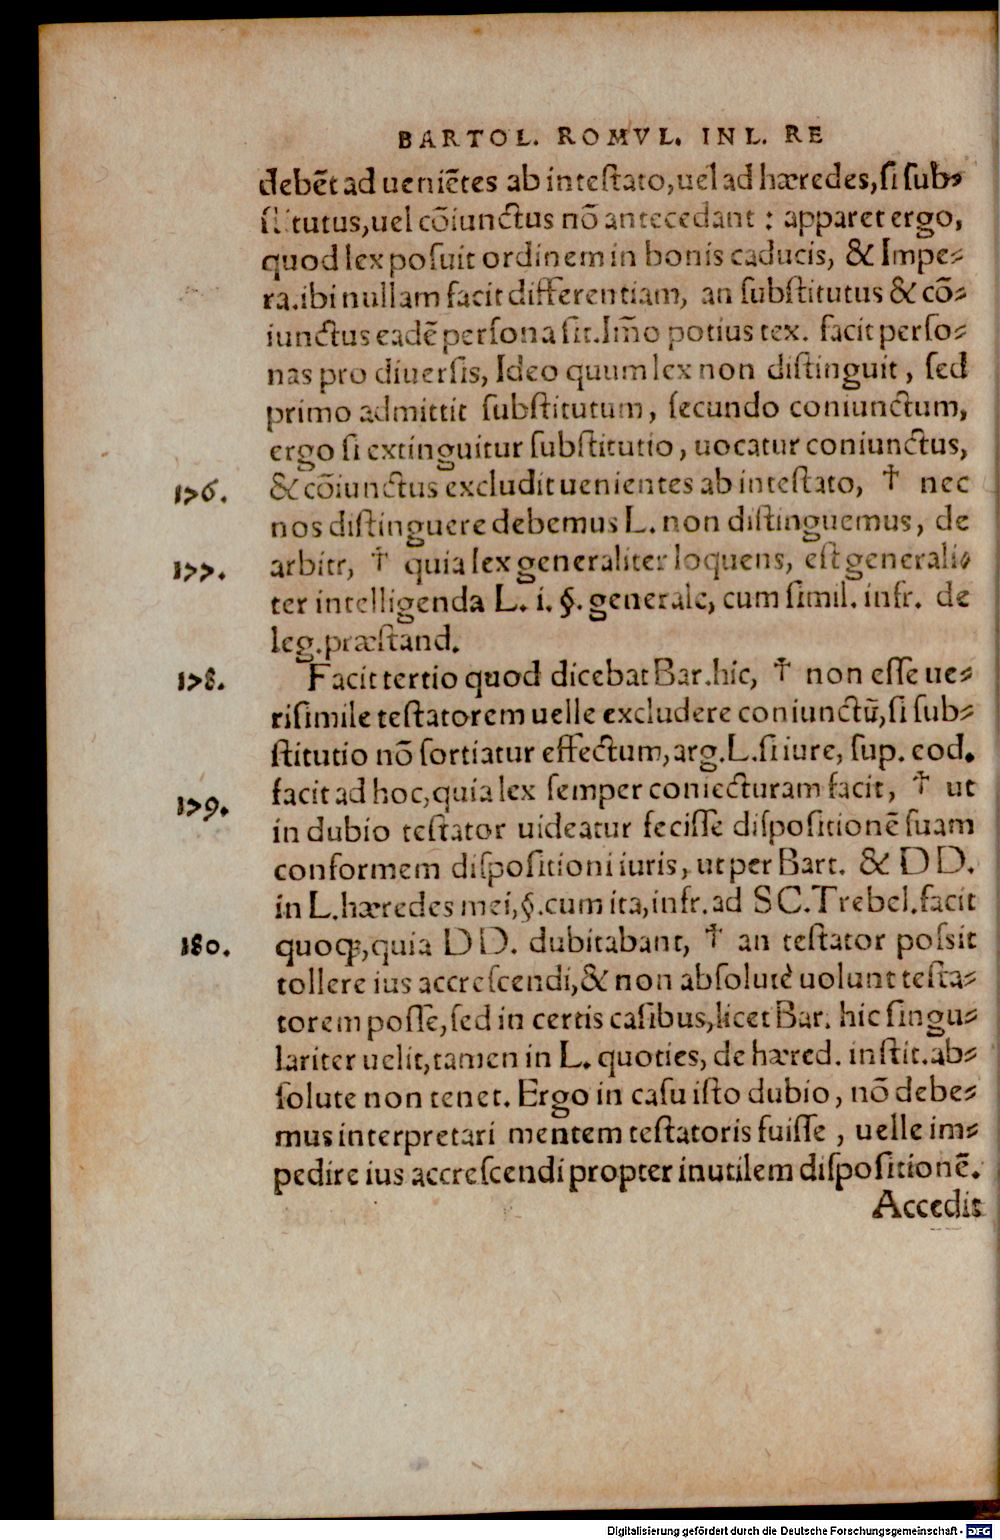 BARTOL. ROMVL. IN L. RE
debēt ad ueniētes ab intestato, uel ad hæredes, si sub-
stitutus, uel cōiunctus nō antecedant : apparet ergo,
quod lex posuit ordinem in bonis caducis, & Impe-
ra. ibi nullam facit differentiam, an substitutus & cō-
iunctus eadē persona sit. Im̄o potius tex. facit perso-
nas pro diuersis, Ideo quum lex non distinguit, sed
primo admittit substitutum, secundo coniunctum,
ergo si extinguitur substitutio, uocatur coniunctus,
176. & cōiunctus excludit uenientes ab intestato, † nec
nos distinguere debemus L. non distinguemus, de
177. arbitr, † quia lex generaliter loquens, est generali-
ter intelligenda L. i. §. generale, cum simil. infr. de
leg. præstand.
178. Facit tertio quod dicebat Bar. hic, † non esse ue-
risimile testatorem uelle excludere coniunctū, si sub-
stitutio nō sortiatur effectum, arg. L. si iure, sup. eod.
179. facit ad hoc, quia lex semper coniecturam facit, † ut
in dubio testator uideatur fecisse dispositionē suam
conformem dispositioni iuris, ut per Bart. & DD.
in L. hæredes mei, §. cum ita, infr. ad SC. Trebel. facit
180. quoqꝫ, quia DD. dubitabant, † an testator possit
tollere ius accrescendi, & non absolutè uolunt testa-
torem posse, sed in certis casibus, licet Bar. hic singu-
lariter uelit, tamen in L. quoties, de hæred. instit. ab-
solute non tenet. Ergo in casu isto dubio, nō debe-
mus interpretari mentem testatoris fuisse, uelle im-
pedire ius accrescendi propter inutilem dispositionē.
Accedit
Digitalisierung gefördert durch die Deutsche Forschungsgemeinschaft - DFG